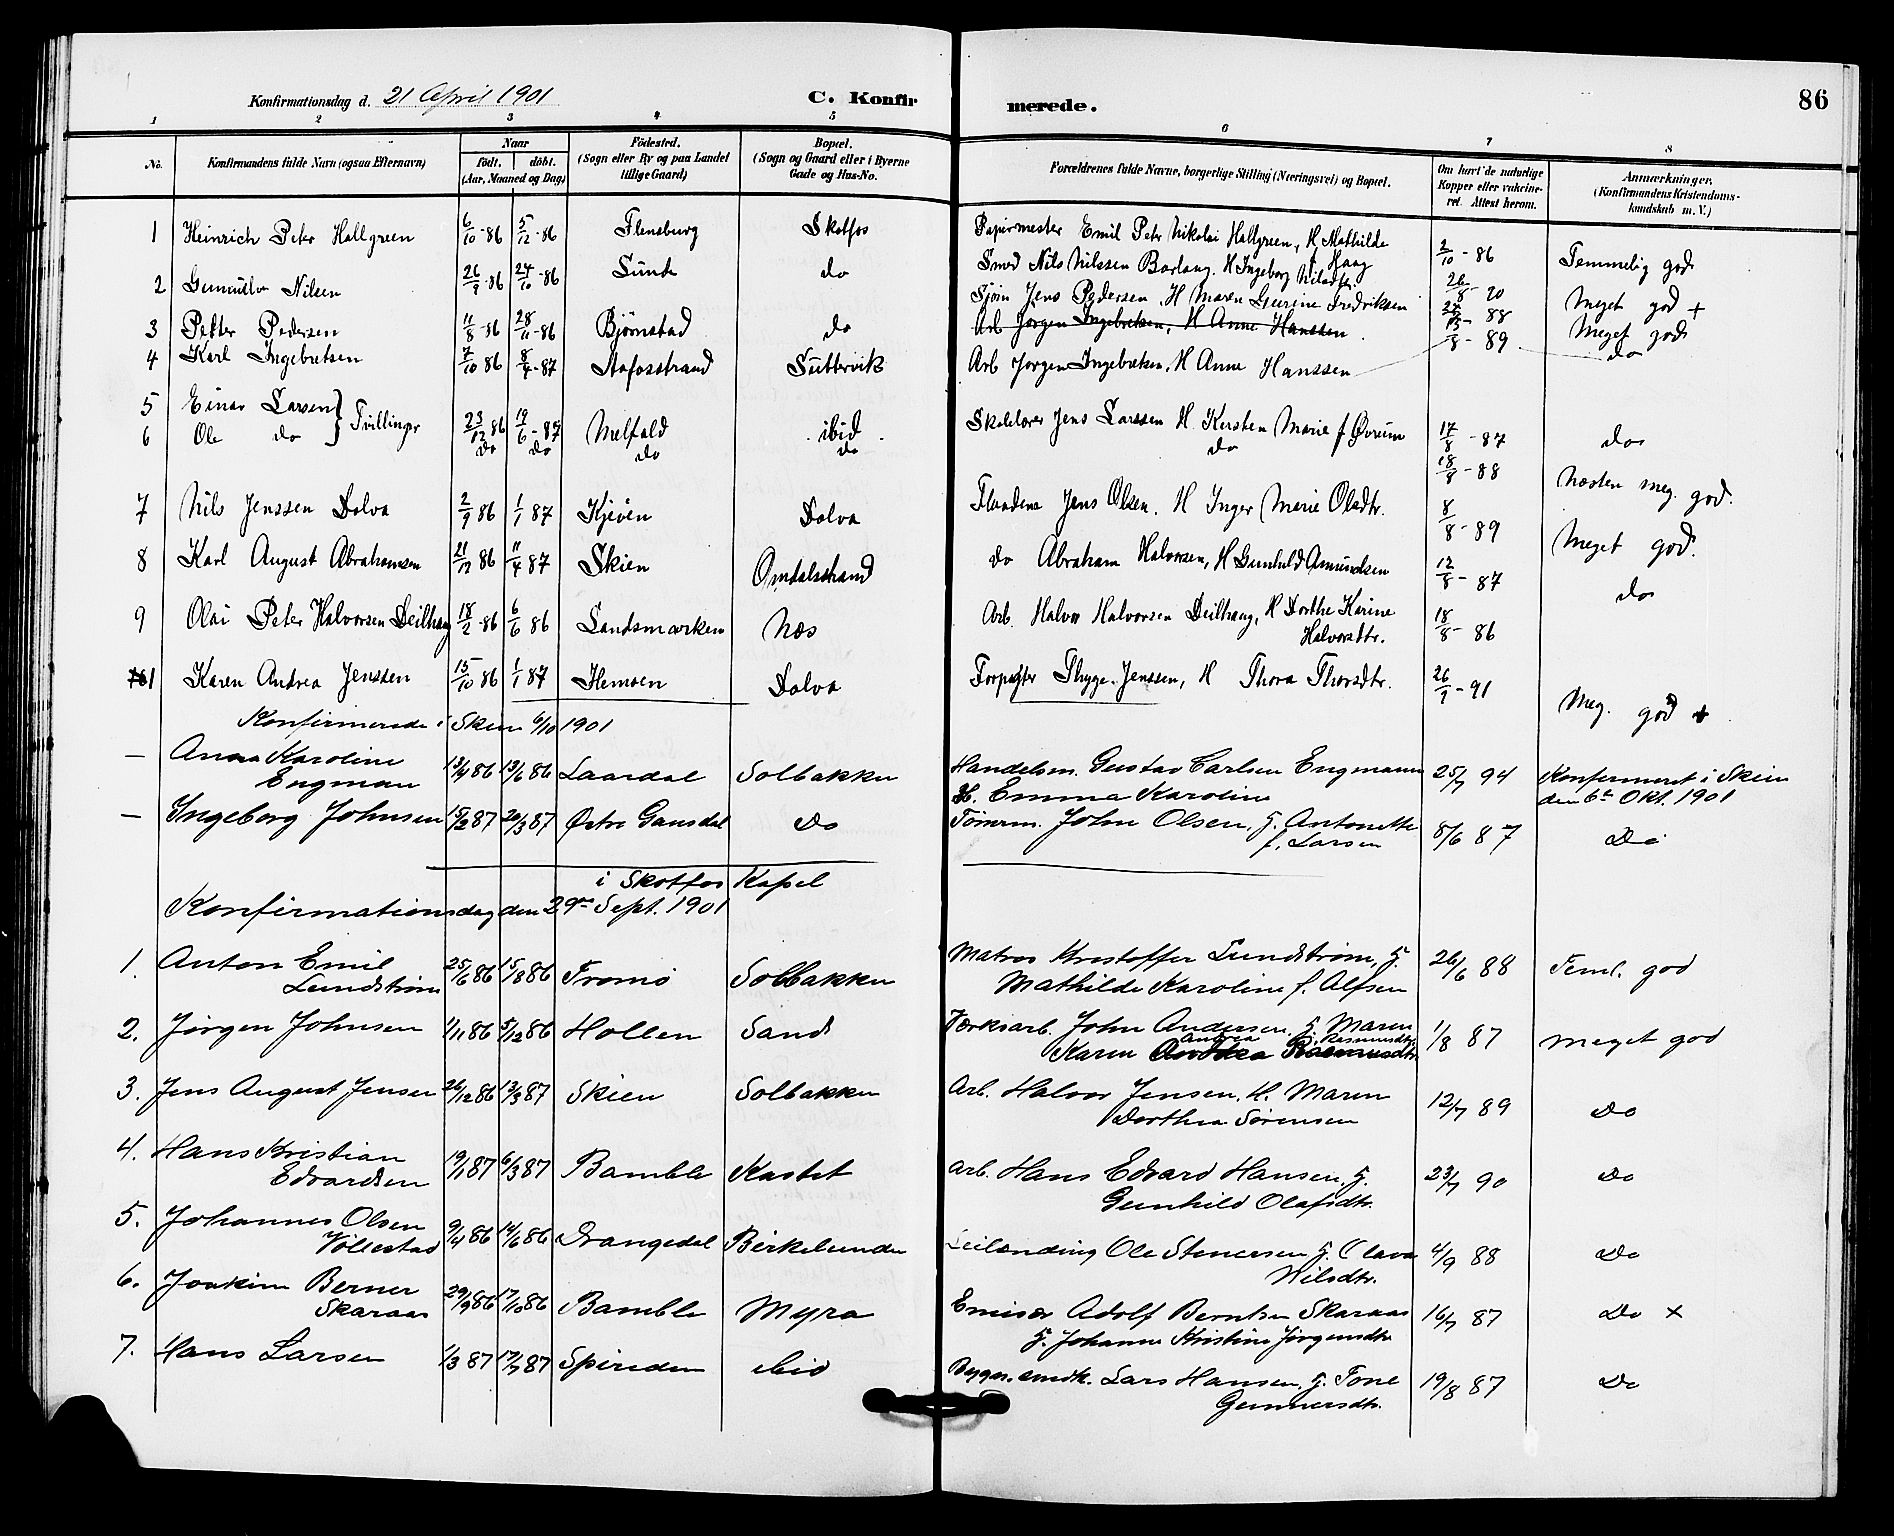 Konfirmationsdag d. 21 April 1901
C. Konfirmerede.
86
1 2 3 4 5 6 7 8
No.
Konfirmandens fulde Navn (ogsaa Efternavn)
Naar
födt. döbt.
(Aar, Maaned og Dag)
Födested.
(Sogn eller By og paa Landet
tillige Gaard)
Bopæl.
(Sogn og Gaard eller i Byerne
Gade og Hus-No.
Forældrenes fulde Navne, borgerlige Stilling (Næringsvei) og Bopæl.
Om havt de naturlige
Kopper eller vakcine-
ret. Attest herom.
Anmærkninger.
(Konfirmandens Kristendoms-
kundskab m. V.)
1 Heinrich Peter Hallgreen 6/10-86 5/12-86 Flensburg Skotfos Papirmester Emil Peter Nikolai Hallgreen, H Mathilde f Haag 2/10-86 Temmelig god
2 Gunnulv Nilsen 26/9-86 24/10-86 Sund do Smed Nils Nilssen Barlaug. H Ingeborg Nilsdtr. 26/8-90 Meget god +
3 Petter Pedersen 11/8-86 28/11-86 Bjørnstad do Sjøm Jens Pedersen. H Maren Gurine Fredriksen 88 Meget god
Arb Jørgen Ingebretsen, H Anne Hanssen
4 Karl Ingebretsen 7/10 86 8/4-87 Stafosstrand Suttervik Arb Jørgen Ingebretsen, H Anne Hanssen 13/8-89 do
5 Einar Larsen } Tvillinger 23/12 86 19/6-87 Melfald ibid Skolelærer Jens Larssen H. Kirsten Marie f Øvrum 17/8-87 do
6 Ole do do do do do do 18/8-88 Næsten meg. god.
7 Nils Jenssen Dolva 2/9 86 1/1 87 Kjeøen Dolva Flaadem Jens Olsen. H Inger Marie Olsdtr. 8/8-89 Meget god.
8 Karl August Abrahamsen 21/12 86 11/4 87 Skien Omdalsstrand do Abraham Halvorsen, H Gunhild Amundsen 12/8-87 do
9 Olai Peter Halvorsen Deilhaug 18/2-86 6/6 86 Landsmarken Næs Arb. Halvor Halvorsen Deilhaug, H Dorthe Karine Halvorsdtr. 18/8-86
1 Karen Andrea Jenssen 15/10 86 1/1 87 Hemsen Dolva Forpagter Thyge Jenssen, H Thora Thorsdtr. 26/9-91 Meg. god +
Konfirmerede i Skien 6/10 1901
— Anna Karoline Engman 13/4 86 13/6 86 Laardal Solbakken Handelsm. Gustav Carlsen Engmann H. Emma Karoline 25/7 94 Konfirmeret i Skien den 6te Okt. 1901
— Ingeborg Johnsen 15/2 87 20/3 87 Østre Gausdal Do Tømrerm. John Olsen, H. Antonette f. Larsen 8/6 87 Do
i Skotfos Kapel
Konfirmationsdag den 29de Sept. 1901
1. Anton Emil Lundstrøm 25/6 86 15/8 86 Tromø Solbakken Matros Kristoffer Lundstrøm, H. Mathilde Karoline f. Alfsen 26/6 88 Teml. god
2. Jørgen Johnsen 1/11 86 5/12 86 Hollen Sand Værksarb. John Andersen, H. Maren Karen Andrea Rasmusdtr. 1/8 87 meget god
3. Jens August Jensen 26/12 86 13/3 87 Skien Solbakken Arb. Halvor Jensen, H. Maren Dorthea Sørensen 12/7 89 Do
4. Hans Kristian Edvardsen 19/1 87 6/3 87 Bamble Kastet Arb. Hans Edvard Hansen, H. Gunhild Olafsdtr. 23/7 90 Do
5. Johannes Olsen Vøllestad 9/4 86 14/6 86 Drangedal Birkelunden Leilænding Ole Stenersen H. Olava Nilsdtr. 4/9 88 Do
6. Joakim Berner Skaraas 29/9 86 17/10 86 Bamble Myra Emisær Adolf Berntsen Skaraas H. Johanne Kristine Jørgensdtr 16/7 87 Do x
7. Hans Larsen 1/3 87 17/7 87 Spireden ibid Bygn.snedk. Lars Hansen, H. Tone Gunnersdtr. 19/8 87 Do